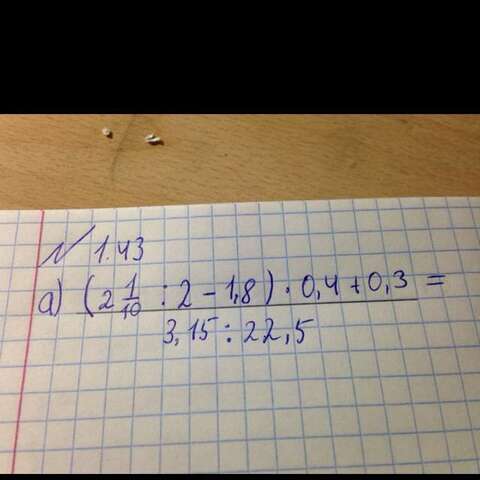 № 1.43
а) (2 1/10 : 2 - 1,8) · 0,4 + 0,3 =
3,15 : 22,5